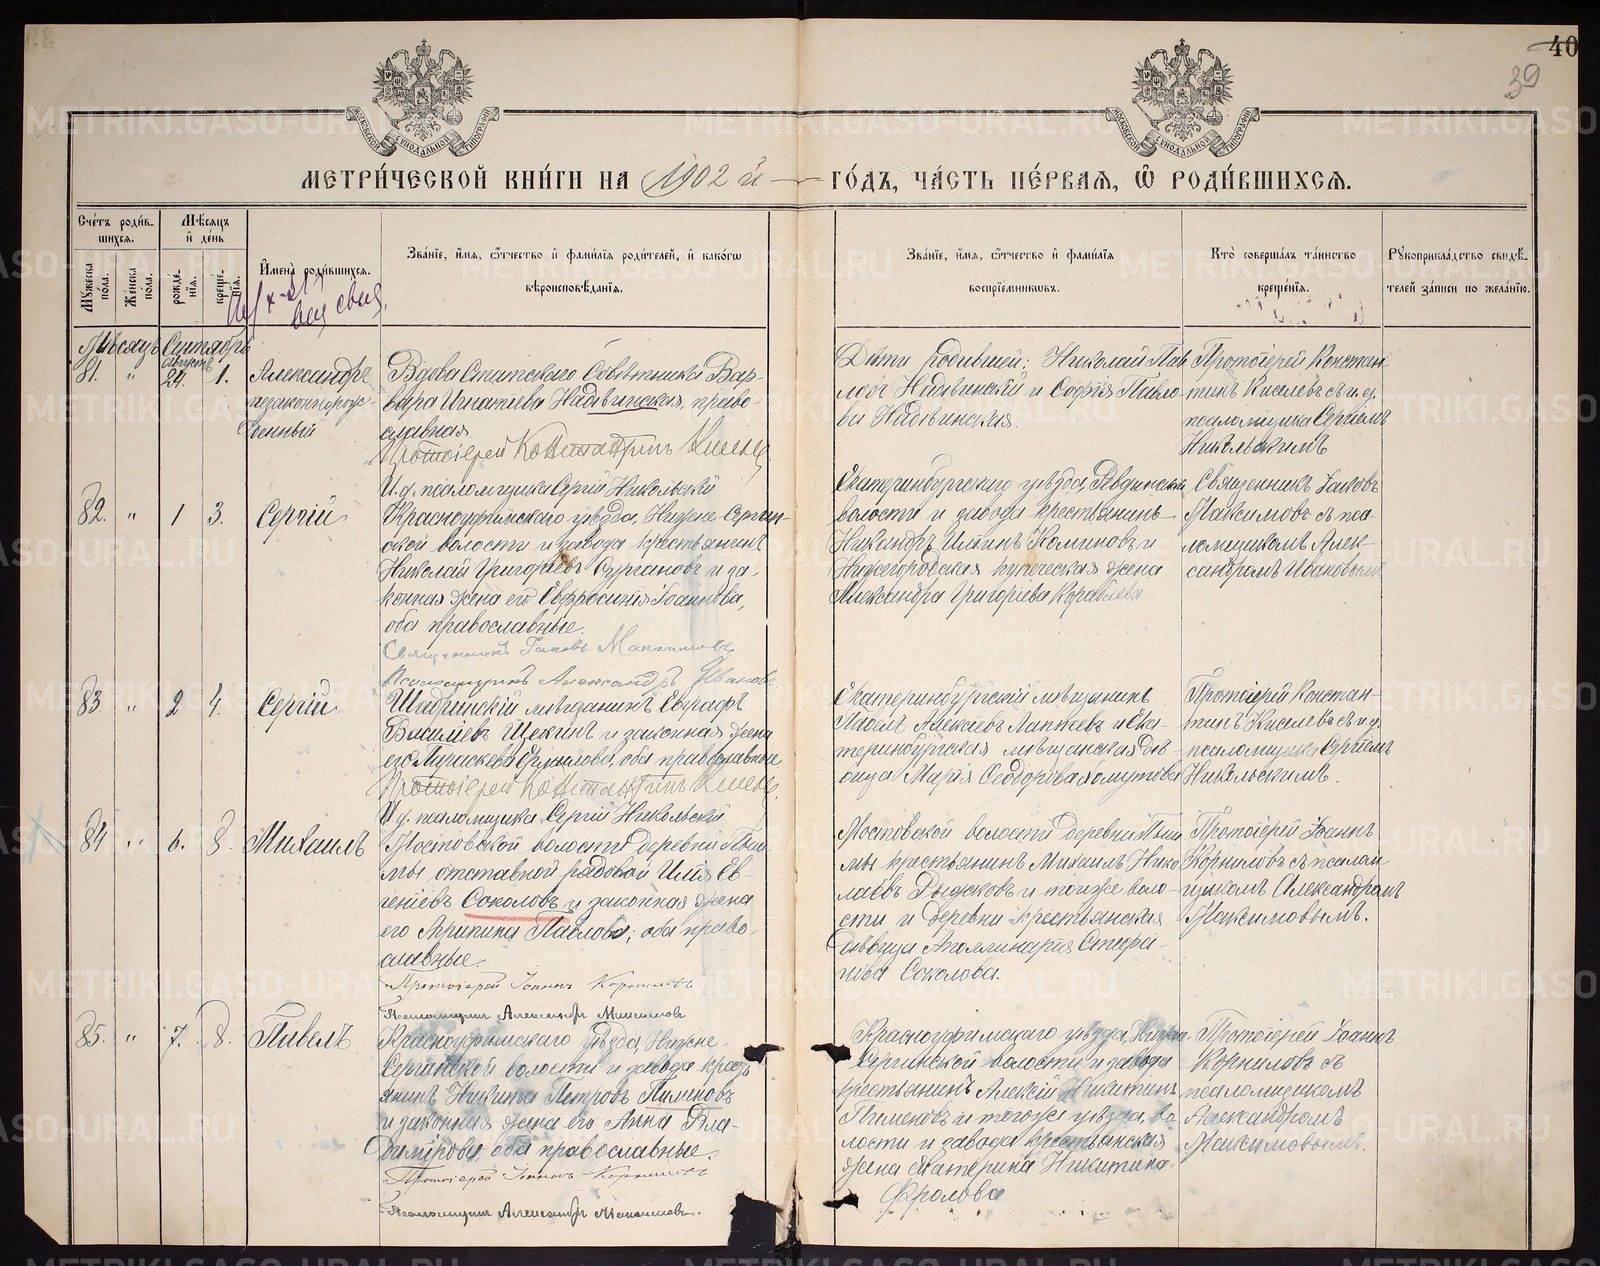 40
39
МЕТРИ́ЧЕСКОЙ КНИ́ГИ НА 1902 й
ГО́ДЪ, ЧА́СТЬ ПЕ́РВАЯ, Ѡ РОДИ́ВШИХСЯ.
Сче́тъ роди́в-
шихся.
Мѣ́сяцъ
и҆ де́нь
Мꙋ́жеска по́ла.
Же́нска по́ла.
рожде́-
нїѧ.
креще́-
нїѧ.
И҆мена̀ роди́вшихся.
Зва́нїе, и҆́мя, ѻ҆́тчество и҆ фами́лїя роди́телей, и҆ како́гѡ
вѣроисповѣ́данїя.
Зва́нїе, и҆́мя, ѻ҆́тчество и҆ фами́лїя
воспрїе́мникѡвъ.
Кто̀ соверша́лъ та́инство
креще́нїя.
Рꙋкоприкла́дство свидѣ́-
телей за́писи по жела́нїю.
Мѣсяцъ Сентябрь
81. " Августъ 24. 1.
Александръ
незаконнорож-
денный
Вдова Статскаго Совѣтника Вар-
вара Игнатіева Надѣвинская, право-
славная
Протоіерей Константинъ Киселевъ
И.д. псаломщика Сергій Никольскій
Дѣти родившей: Николай Пав
ловъ Надѣвинскій и Софія Павло-
ва Надѣвинская.
Протоіерей Констан
тинъ Киселевъ съ и.д.
псаломщика Сергіемъ
Никольскимъ
82. " 1 3. Сергій
Красноуфимскаго уѣзда, Нижне-Сергин-
ской волости и завода крестьянинъ
Николай Григоріевъ Сургановъ и за-
конная жена его Евфросинія Іоаннова,
оба православные.
Священникъ Іаковъ Максимовъ
Псаломщикъ Александръ Ивановъ
Екатеринбургскаго уѣзда, Ревдинской
волости и завода крестьянинъ
Никандръ Ильинъ Коминовъ и
Нижегородская купеческая жена
Александра Григоріева Кораблева
Священникъ Іаковъ
Максимовъ съ пса-
ломщикомъ Алек-
сандромъ Ивановымъ
83. " 2 4. Сергій
Шадринскій мѣщанинъ Евграфъ
Василіевъ Щекинъ и законная жена
его Параскева, оба православные
Протоіерей Константинъ Киселевъ
И.д. псаломщика Сергій Никольскій
Екатеринбургскій мѣщанинъ
Алексіевъ Лаптевъ и Ека-
теринбургская мѣщанская дѣ-
вица Марія Ѳеодорова Хомутова
Протоіерей Констан-
тинъ Киселевъ съ и.д.
псаломщика Сергіемъ
Никольскимъ.
84 " 6. 8. Михаилъ
Мостовской волости деревни Пыш-
мы отставной рядовой Илія Ев-
геніевъ Соколовъ и законная жена
его Агрипина Павлова; оба право-
славные.
Протоіерей Іоаннъ Корниловъ
Псаломщикъ Александръ Максимовъ
Мостовской волости деревни Пыш
мы крестьянинъ Михаилъ Нико
лаевъ Рыжковъ и тойже воло-
сти и деревни крестьянская
дѣвица Аполлинарія Стефа-
нова Соколова.
Протоіерей Іоаннъ
Корниловъ съ псалом
щикомъ Александромъ
Максимовымъ.
85. " 7. 8. Павелъ
Красноуфимскаго уѣзда, Нижне-
Сергинской волости и завода кресть
янинъ Никита Петровъ Пименовъ
и законная жена его Анна Вла-
димірова, оба православные.
Протоіерей Іоаннъ Корниловъ
Псаломщикъ Александръ Максимовъ.
Красноуфимскаго уѣзда, Нижне
Сергинской волости и завода
крестьянинъ Алексій Никитинъ
Пименовъ и тогоже уѣзда, во
лости и завода крестьянская
жена Екатерина Никитина
Фролова
Протоіерей Іоаннъ
Корниловъ съ
псаломщикомъ
Александромъ
Максимовымъ.
METRIKI.GASO-URAL.RU